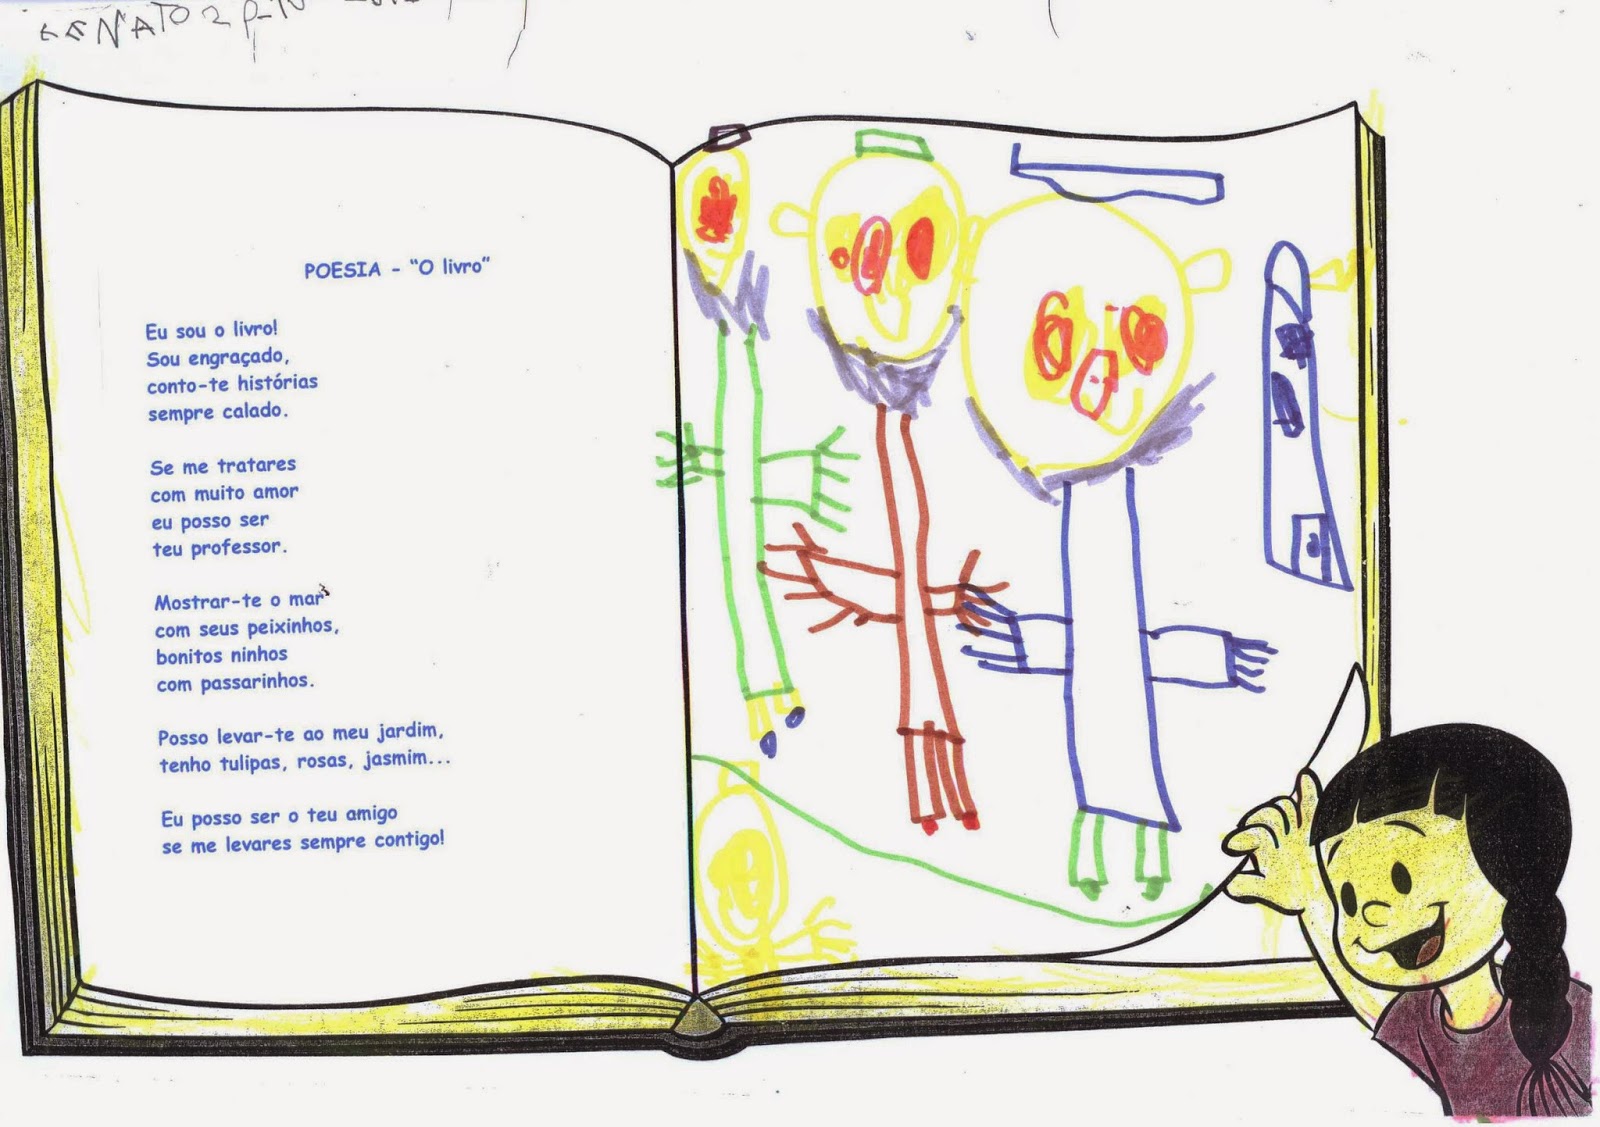 POESIA - “O livro”
Eu sou o livro!
Sou engraçado,
conto-te histórias
sempre calado.
Se me tratares
com muito amor
eu posso ser
teu professor.
Mostrar-te o mar
com seus peixinhos,
bonitos ninhos
com passarinhos.
Posso levar-te ao meu jardim,
tenho tulipas, rosas, jasmim...
Eu posso ser o teu amigo
se me levares sempre contigo!